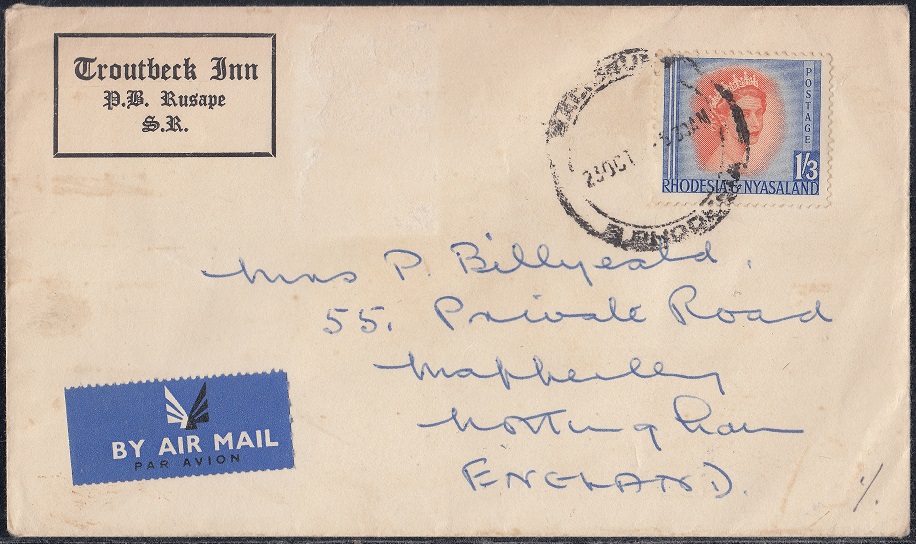 Troutbeck Inn
P.B. Rusape
S.R.
POSTAGE
1/3
RHODESIA & NYASALAND
23 OCT
Mrs P. Billyeald.
55. Private Road
Mapperley
Nottingham
ENGLAND.
BY AIR MAIL
PAR AVION